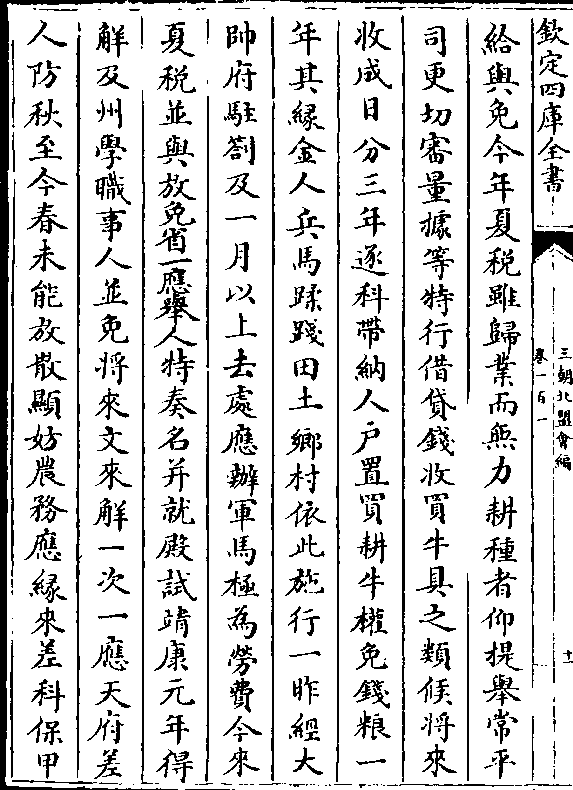 欽定四庫全書
三朝北盟會編
卷一百一
十一
給與免今年夏税雖歸業而無力耕種者仰提舉常平
司更切審量據等特行借貸錢收買牛具之類候將來
收成日分三年逐科帶納人户置買耕牛權免錢糧一
年其緣金人兵馬蹂踐田土鄉村依此施行一昨經大
帥府駐劄及一月以上去處應辦軍馬極為勞費今來
夏税並與放免省一應舉人特奏名并就殿試靖康元年得
解及州學職事人並免將來文來解一次一應天府差
人防秋至今春未能放散顯妨農務應緣來差科保甲